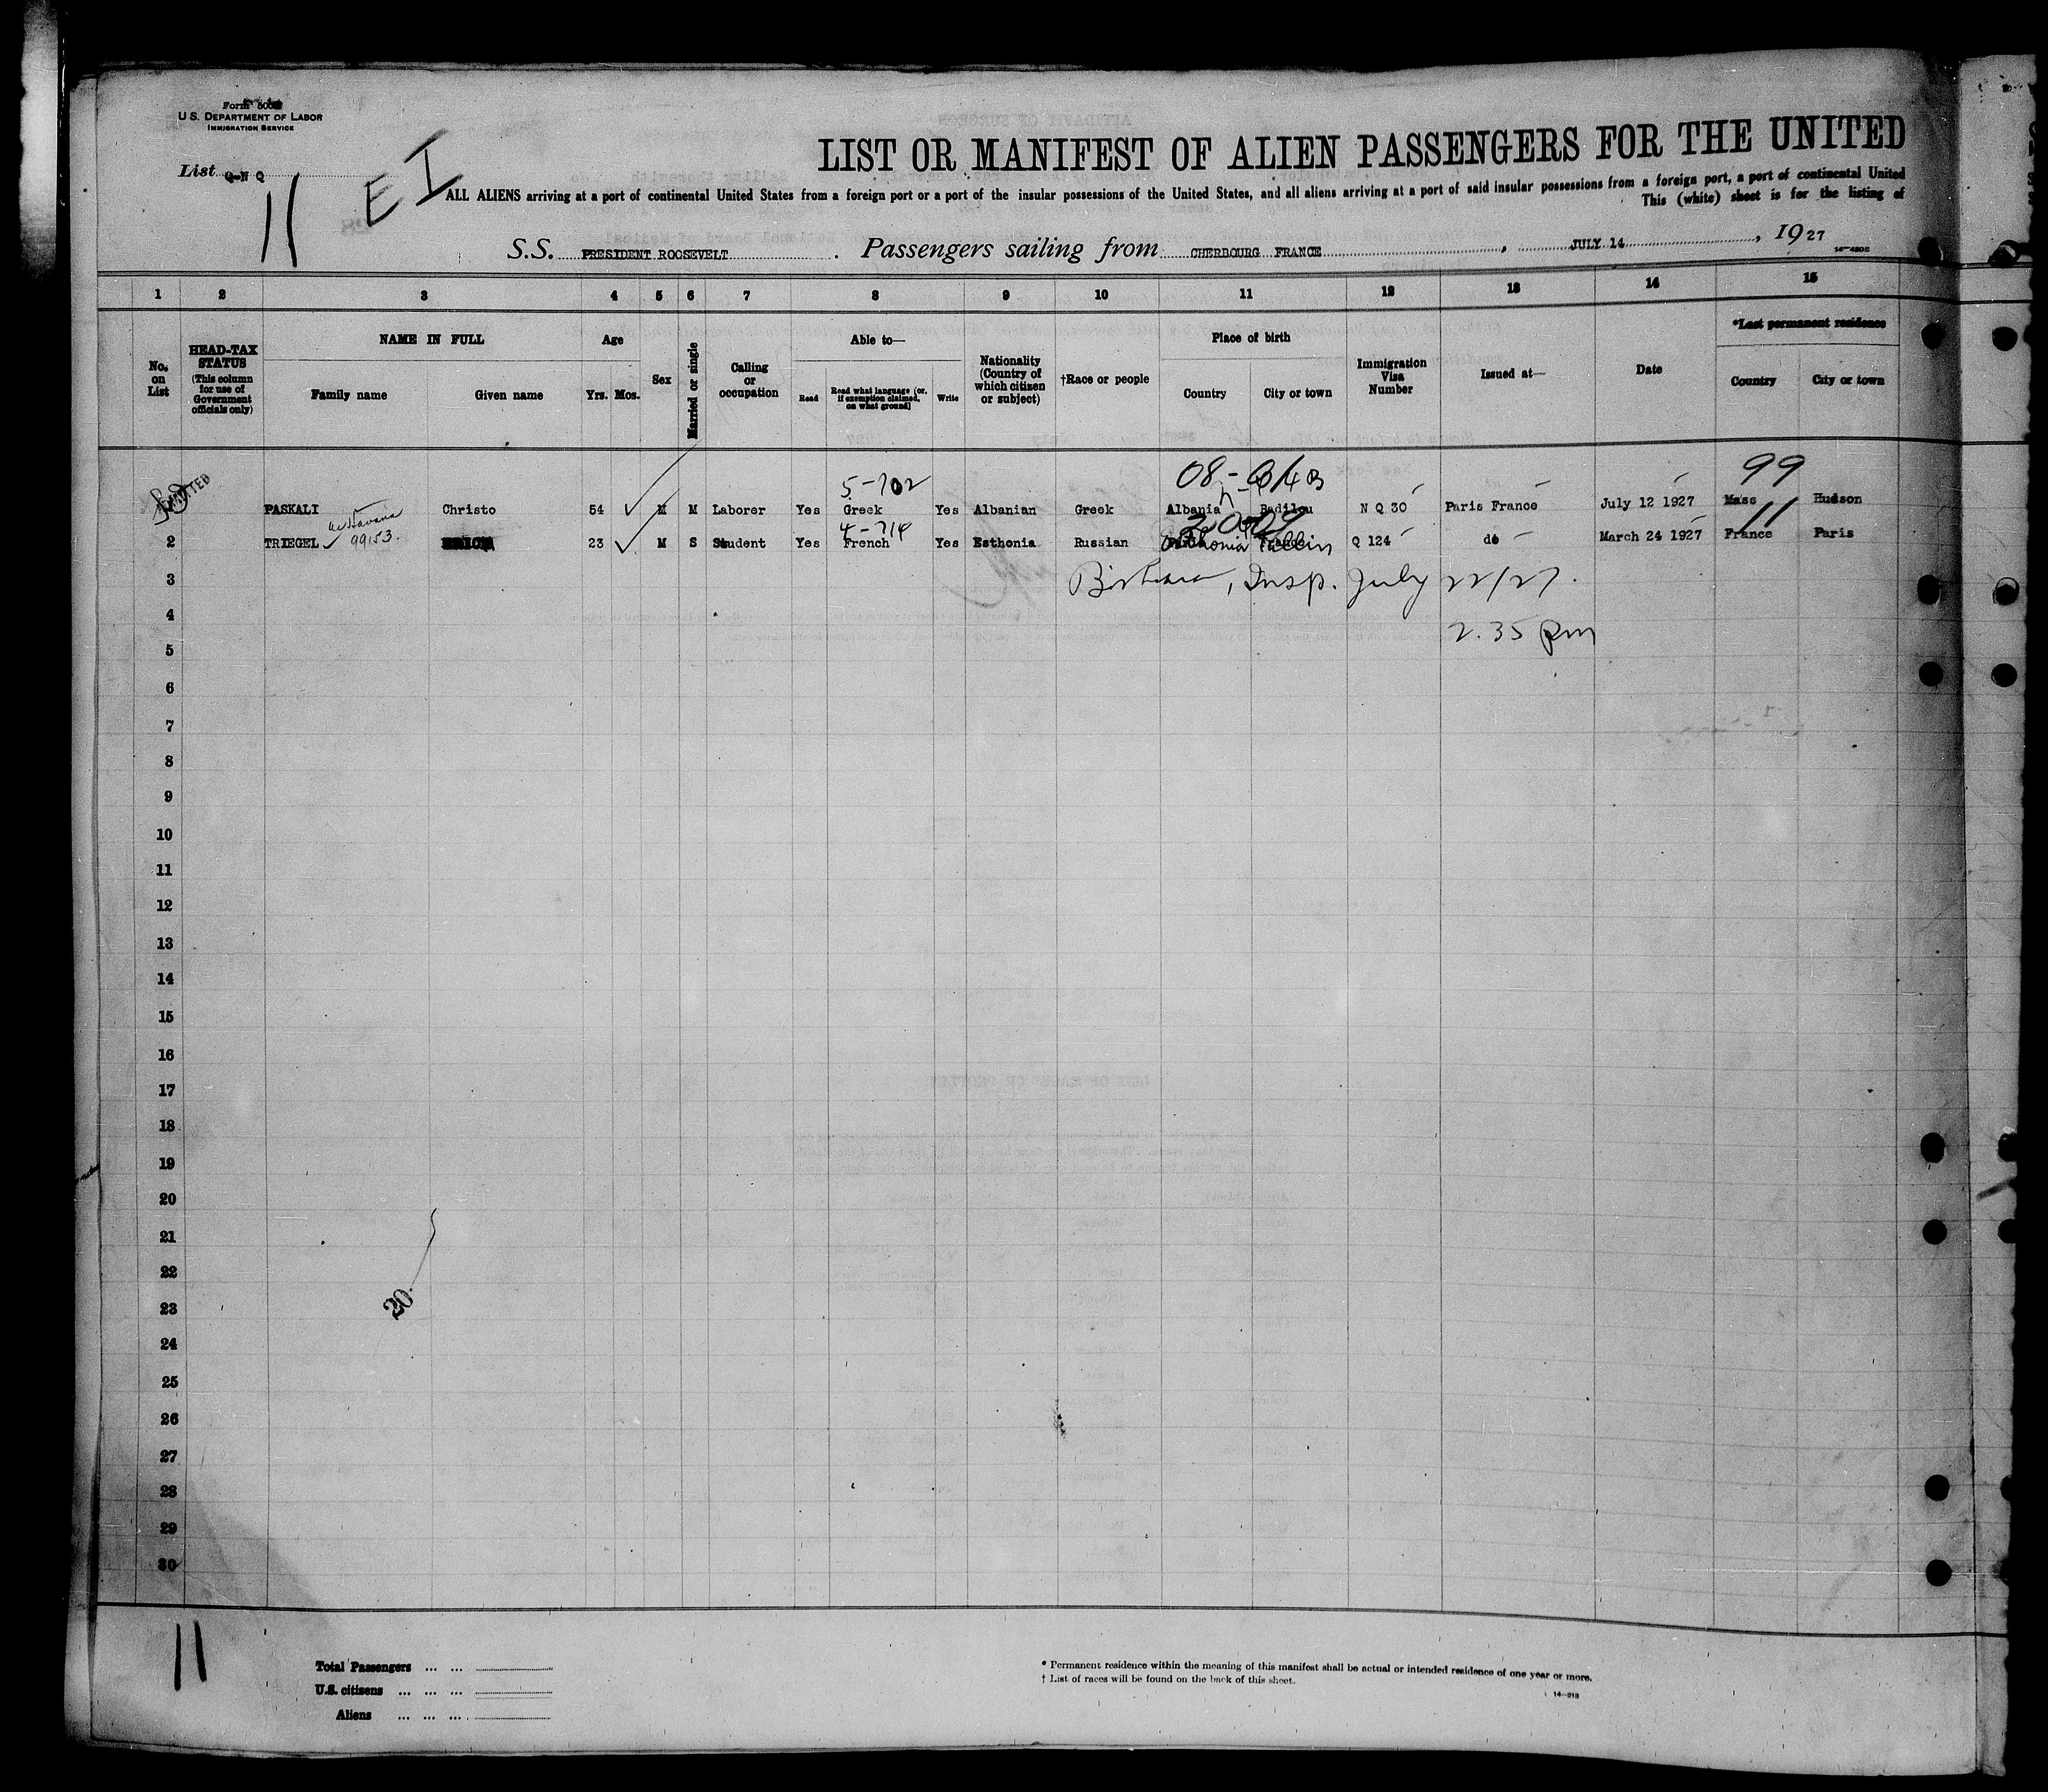 Form 500
U.S. DEPARTMENT OF LABOR
IMMIGRATION SERVICE
List Q-N Q
11
E I
LIST OR MANIFEST OF ALIEN PASSENGERS FOR THE UNITED
ALL ALIENS arriving at a port of continental United States from a foreign port or a port of the insular possessions of the United States, and all aliens arriving at a port of said insular possessions from a foreign port, a port of continental United
This (white) sheet is for the listing of
S.S. PRESIDENT ROOSEVELT . Passengers sailing from CHERBOURG FRANCE , JULY 14 , 1927
1 2 3 4 5 6 7 8 9 10 11 12 13 14 15
No. on List
HEAD-TAX STATUS (This column for use of Government officials only)
NAME IN FULL
Family name Given name
Age
Yrs. Mos.
Sex
Married or single
Calling or occupation
Able to—
Read
Read what language [or, if exemption claimed, on what ground]
Write
Nationality (Country of which citizen or subject)
†Race or people
Place of birth
Country City or town
Immigration Visa Number
Issued at—
Date
*Last permanent residence
Country City or town
ADMITTED
5-702 99
PASKALI Christo 54 M M Laborer Yes Greek Yes Albanian Greek Albania Badilou N Q 30 Paris France July 12 1927 Mass Hudson
99153. 4-714 11
2 TRIEGEL 23 M S Student Yes French Yes Esthonia Russian Esthonia Tallin Q 124 do March 24 1927 France Paris
3 , Insp. July 22/27.
4
2.35 pm
5
6
7
8
9
10
11
12
13
14
15
16
17
18
19
20
21
22
23
20
24
25
26
27
28
29
30
11
Total Passengers ... ...
U.S. citizens ... ... ...
Aliens ... ... ...
* Permanent residence within the meaning of this manifest shall be actual or intended residence of one year or more.
† List of races will be found on the back of this sheet.
14—213